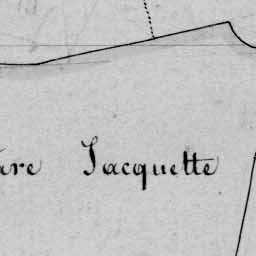 are Jacquette